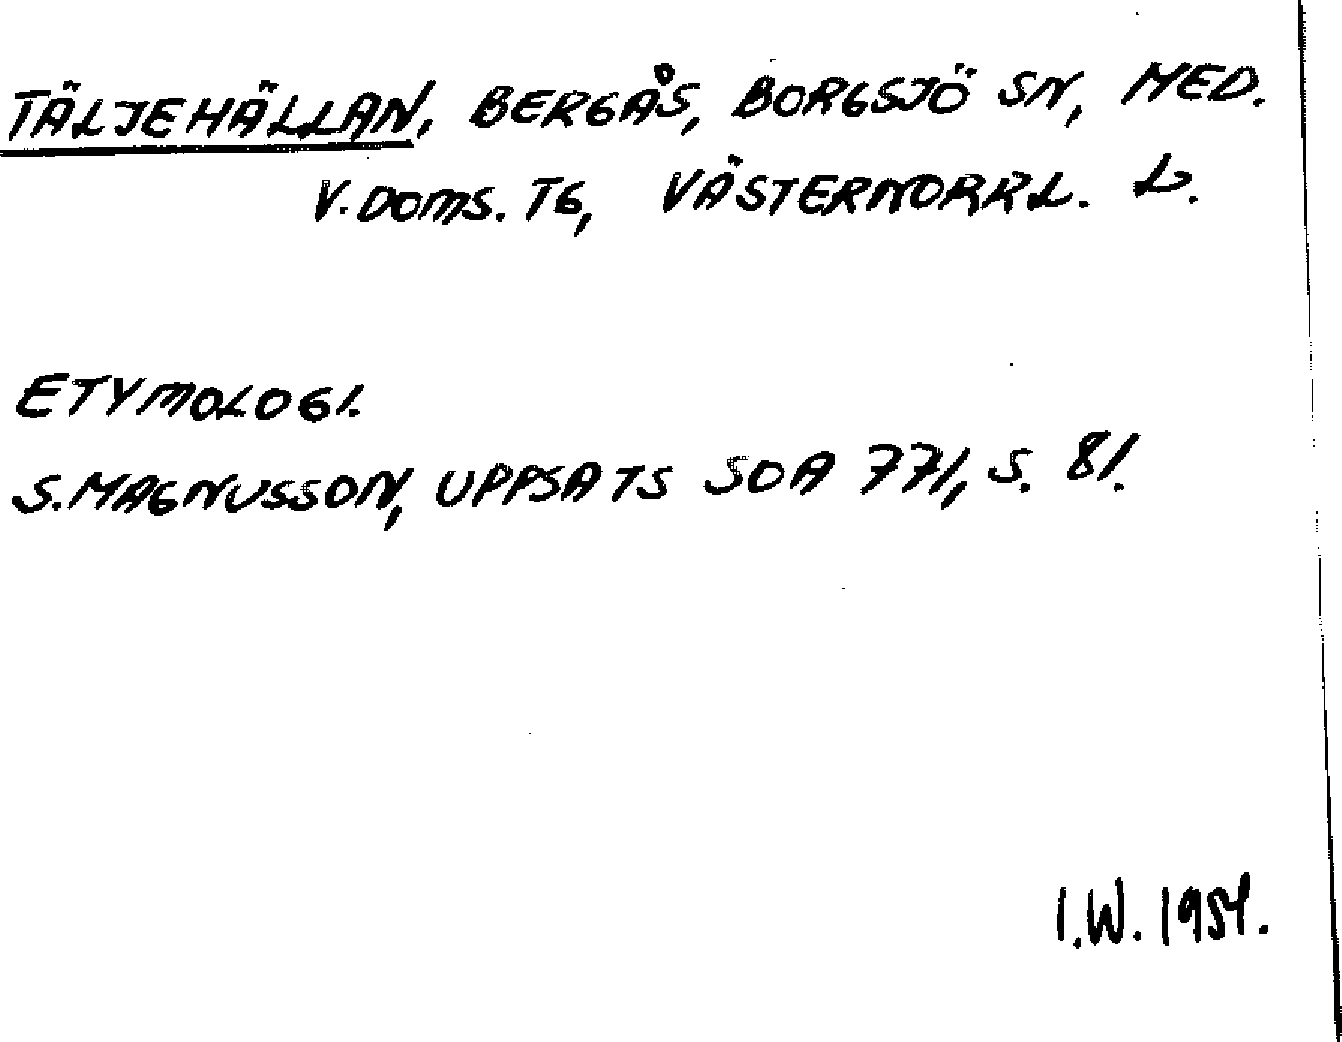 TÄLJEHÄLLAN, BERGÅS, BORGSJÖ SN, MED.
V. DOMS. TG, VÄSTERNORRL. L.
ETYMOLOGI.
S. MAGNUSSON, UPPSATS SOA 771, S. 81.
I.W. 1954.